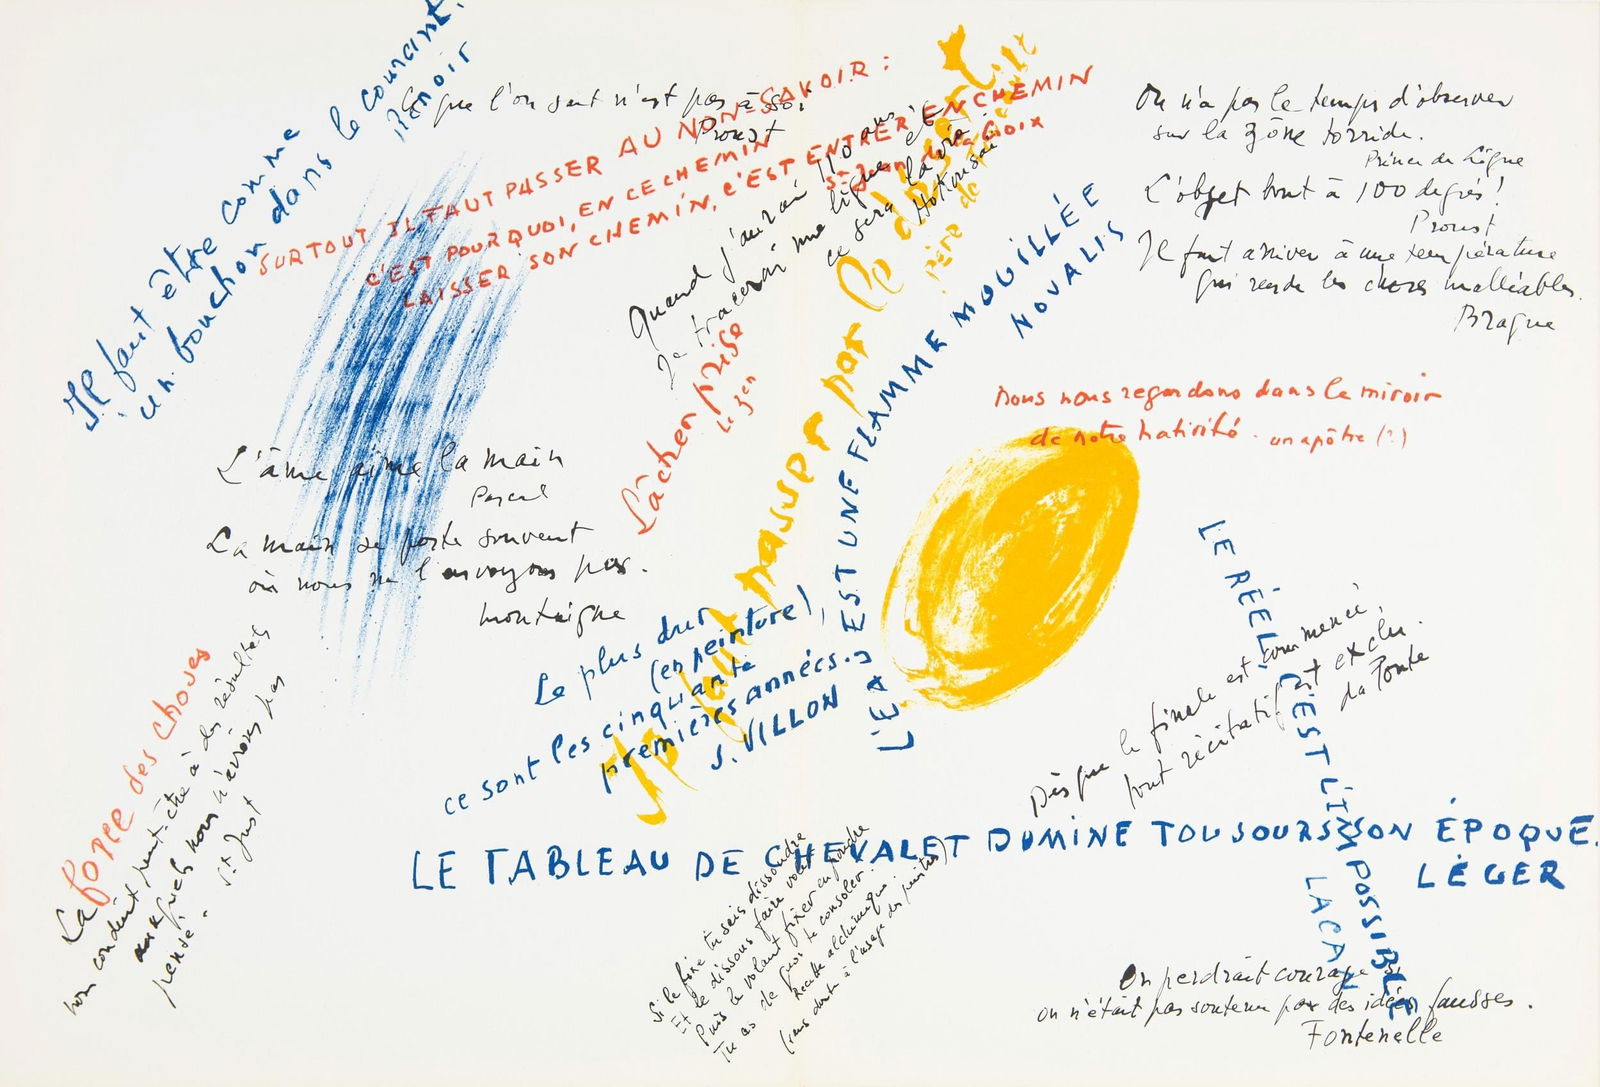 Il faut être comme
un bouchon dans le courant.
Renoir
Ce que l'on sent n'est pas à soi
Proust
SURTOUT IL FAUT PASSER AU NON-SAVOIR :
C'EST POURQUOI, EN CE CHEMIN
LAISSER SON CHEMIN, C'EST ENTRER EN CHEMIN
St Jean de la Croix
Quand j'aurai 110 ans
je tracerai une ligne et
ce sera la vie
Hokusai
Lâcher prise
le zen
Il faut passer par le
père de
On n'a pas le temps d'observer
sur la zône torride.
Prince de Ligne
L'objet bout à 100 degrés !
Proust
Il faut arriver à une température
qui rende les choses malléables.
Braque
L'EAU EST UNE FLAMME MOUILLÉE
NOVALIS
Nous nous regardons dans le miroir
de notre nativité. un apôtre (?)
L'âme aime la main
Pascal
La main se porte souvent
où nous ne l'envoyons pas.
Montaigne
Le plus dur
(en peinture),
ce sont les cinquante
premières années.
J. VILLON
La force des choses
nous conduit peut-être à des résultats
auxquels nous n'avions pas
pensé.
St Just
LE RÉEL, C'EST L'IMPOSSIBLE
LACAN
Dès que le finale est commencé,
tout récitatif est exclu.
da Ponte
LE TABLEAU DE CHEVALET DOMINE TOUJOURS SON ÉPOQUE.
LÉGER
Si le fixe tu sais dissoudre
Et le dissous faire voler
Puis le volant fixer en poudre
Tu as de quoi te consoler.
Recette alchimique.
(sans doute à l'usage des peintres)
On perdrait courage si
on n'était pas soutenu par des idées fausses.
Fontenelle